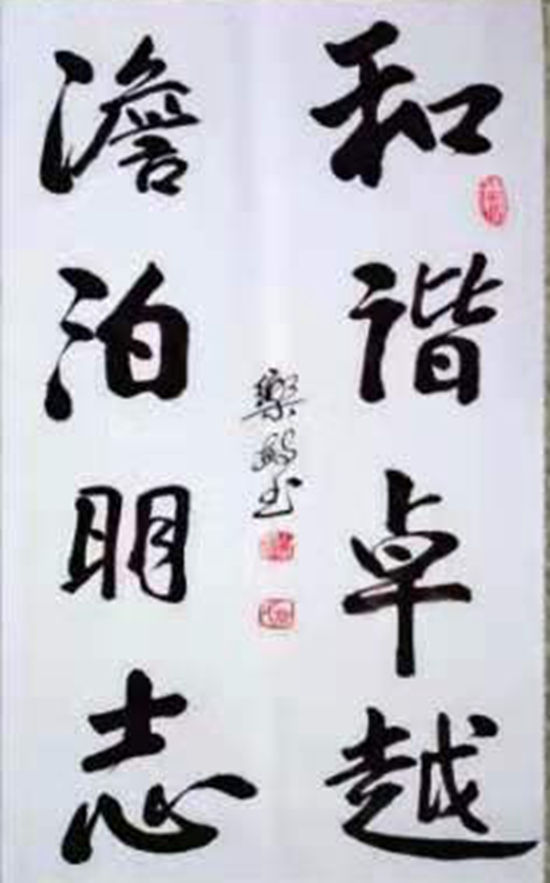 和谐卓越
澹泊明志